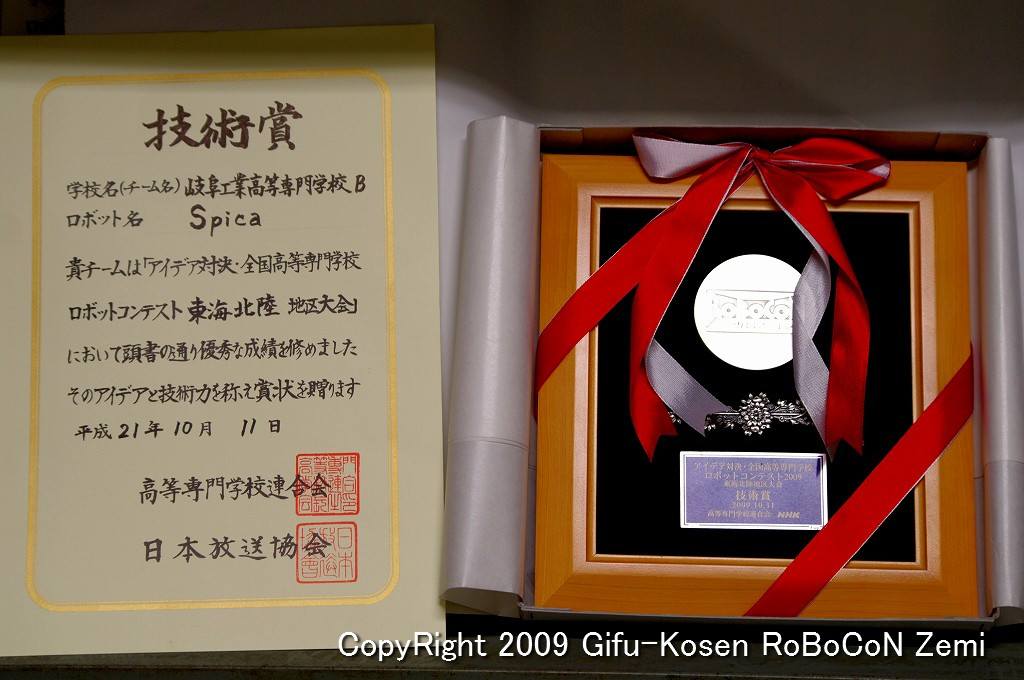 技術賞
学校名(チーム名) 岐阜工業高等専門学校B
ロボット名 Spica
貴チームは「アイデア対決・全国高等専門学校
ロボットコンテスト 東海北陸 地区大会」
において頭書の通り優秀な成績を修めました
そのアイデアと技術力を称え賞状を贈ります
平成21年10月 11日
高等専門学校連合会
日本放送協会
アイデア対決・全国高等専門学校
ロボットコンテスト2009
東海北陸地区大会
技術賞
2009.10.11
高等専門学校連合会 NHK
CopyRight 2009 Gifu-Kosen RoBoCoN Zemi